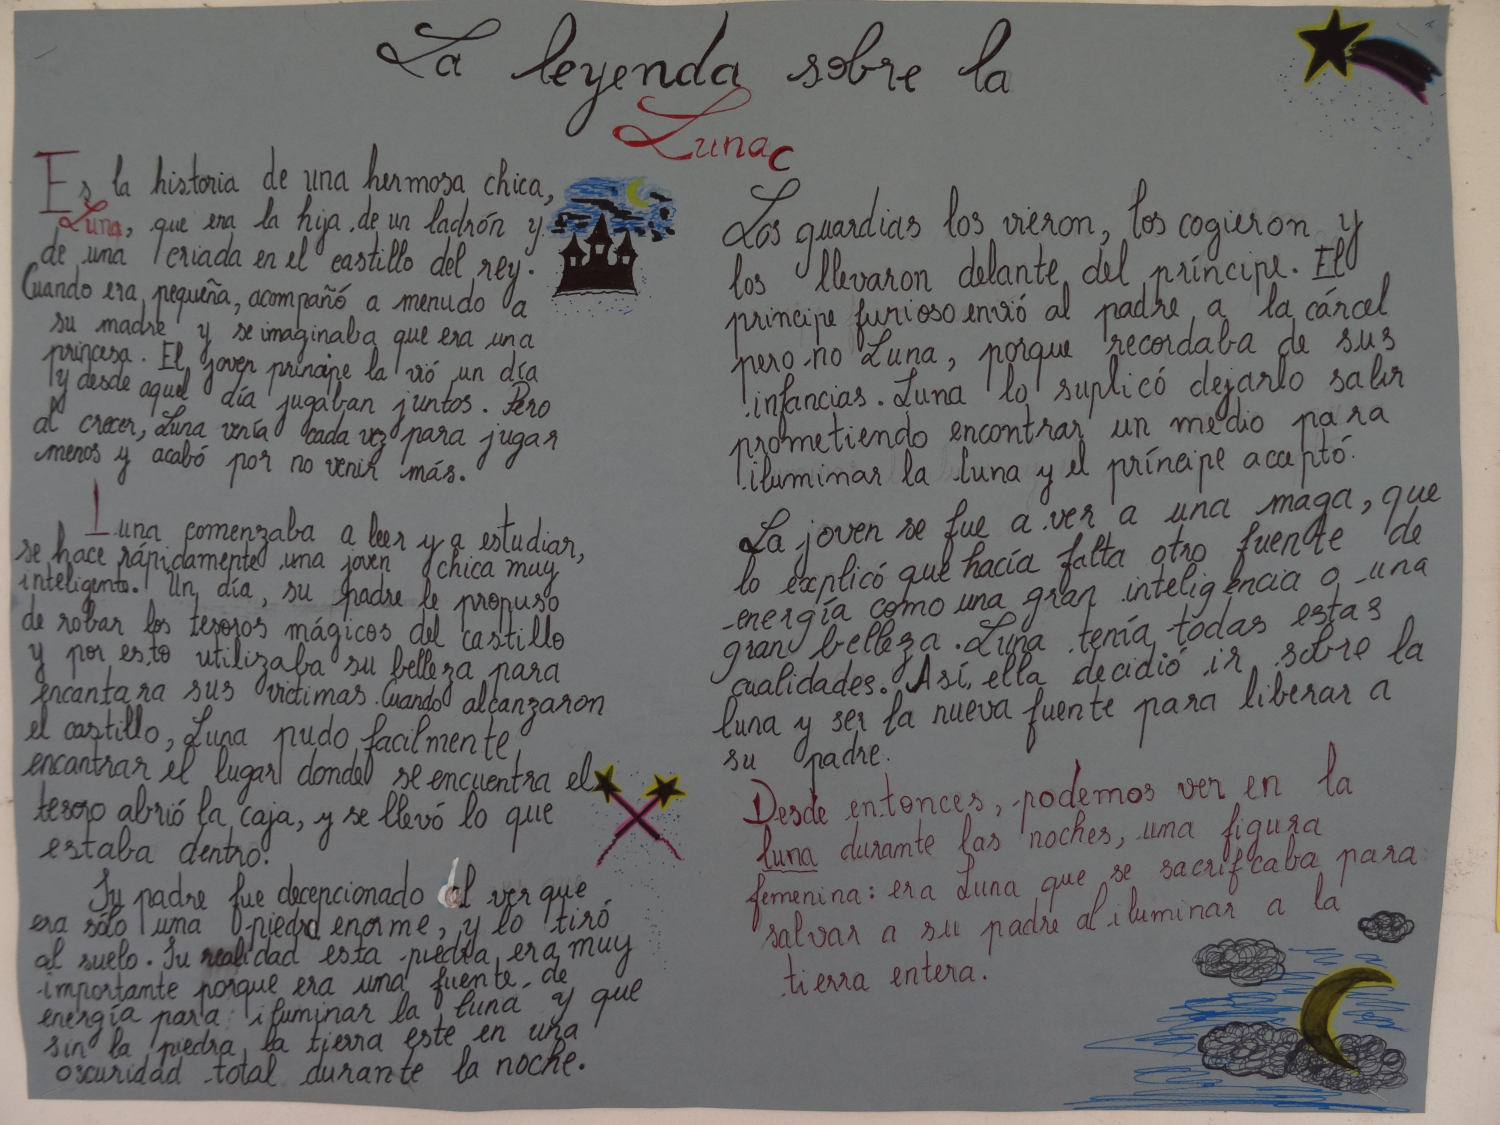 La leyenda sobre la
Luna
Es la historia de una hermosa chica,
Luna, que era la hija de un ladrón y
de una criada en el castillo del rey.
Cuando era pequeña, acompañó a menudo a
su madre y se imaginaba que era una
princesa. El joven príncipe la vió un día
y desde aquel día jugaban juntos. Pero
al crecer, Luna venía cada vez para jugar
menos y acabó por no venir más.
Luna comenzaba a leer y a estudiar,
se hace rápidamente una joven chica muy
inteligente. Un día, su padre le propuso
de robar los tesoros mágicos del castillo
y por esto utilizaba su belleza para
encantara sus víctimas. Cuando alcanzaron
el castillo, Luna pudo facilmente
encantrar el lugar donde se encuentra el
tesoro abrió la caja, y se llevó lo que
estaba dentro.
Su padre fue decepcionado al ver que
era sólo una piedra enorme, y lo tiró
al suelo. Su realidad esta piedra era muy
importante porque era una fuente de
energía para iluminar la luna y que
sin la piedra la tierra este en una
oscuridad total durante la noche.
Los guardias los vieron, los cogieron y
los llevaron delante del príncipe. El
príncipe furioso envió al padre a la cárcel
pero no Luna, porque recordaba de sus
infancias. Luna lo suplicó dejarlo salir
prometiendo encontrar un medio para
iluminar la luna y el príncipe acceptó.
La joven se fue a ver a una maga, que
lo explicó que hacía falta otro fuente de
energía como una gran inteligencia o una
gran belleza. Luna tenía todas estas
cualidades. Así, ella decidió ir sobre la
luna y ser la nueva fuente para liberar a
su padre.
Desde entonces, podemos ver en la
luna durante las noches, una figura
femenina: era Luna que se sacrificaba para
salvar a su padre al iluminar a la
tierra entera.